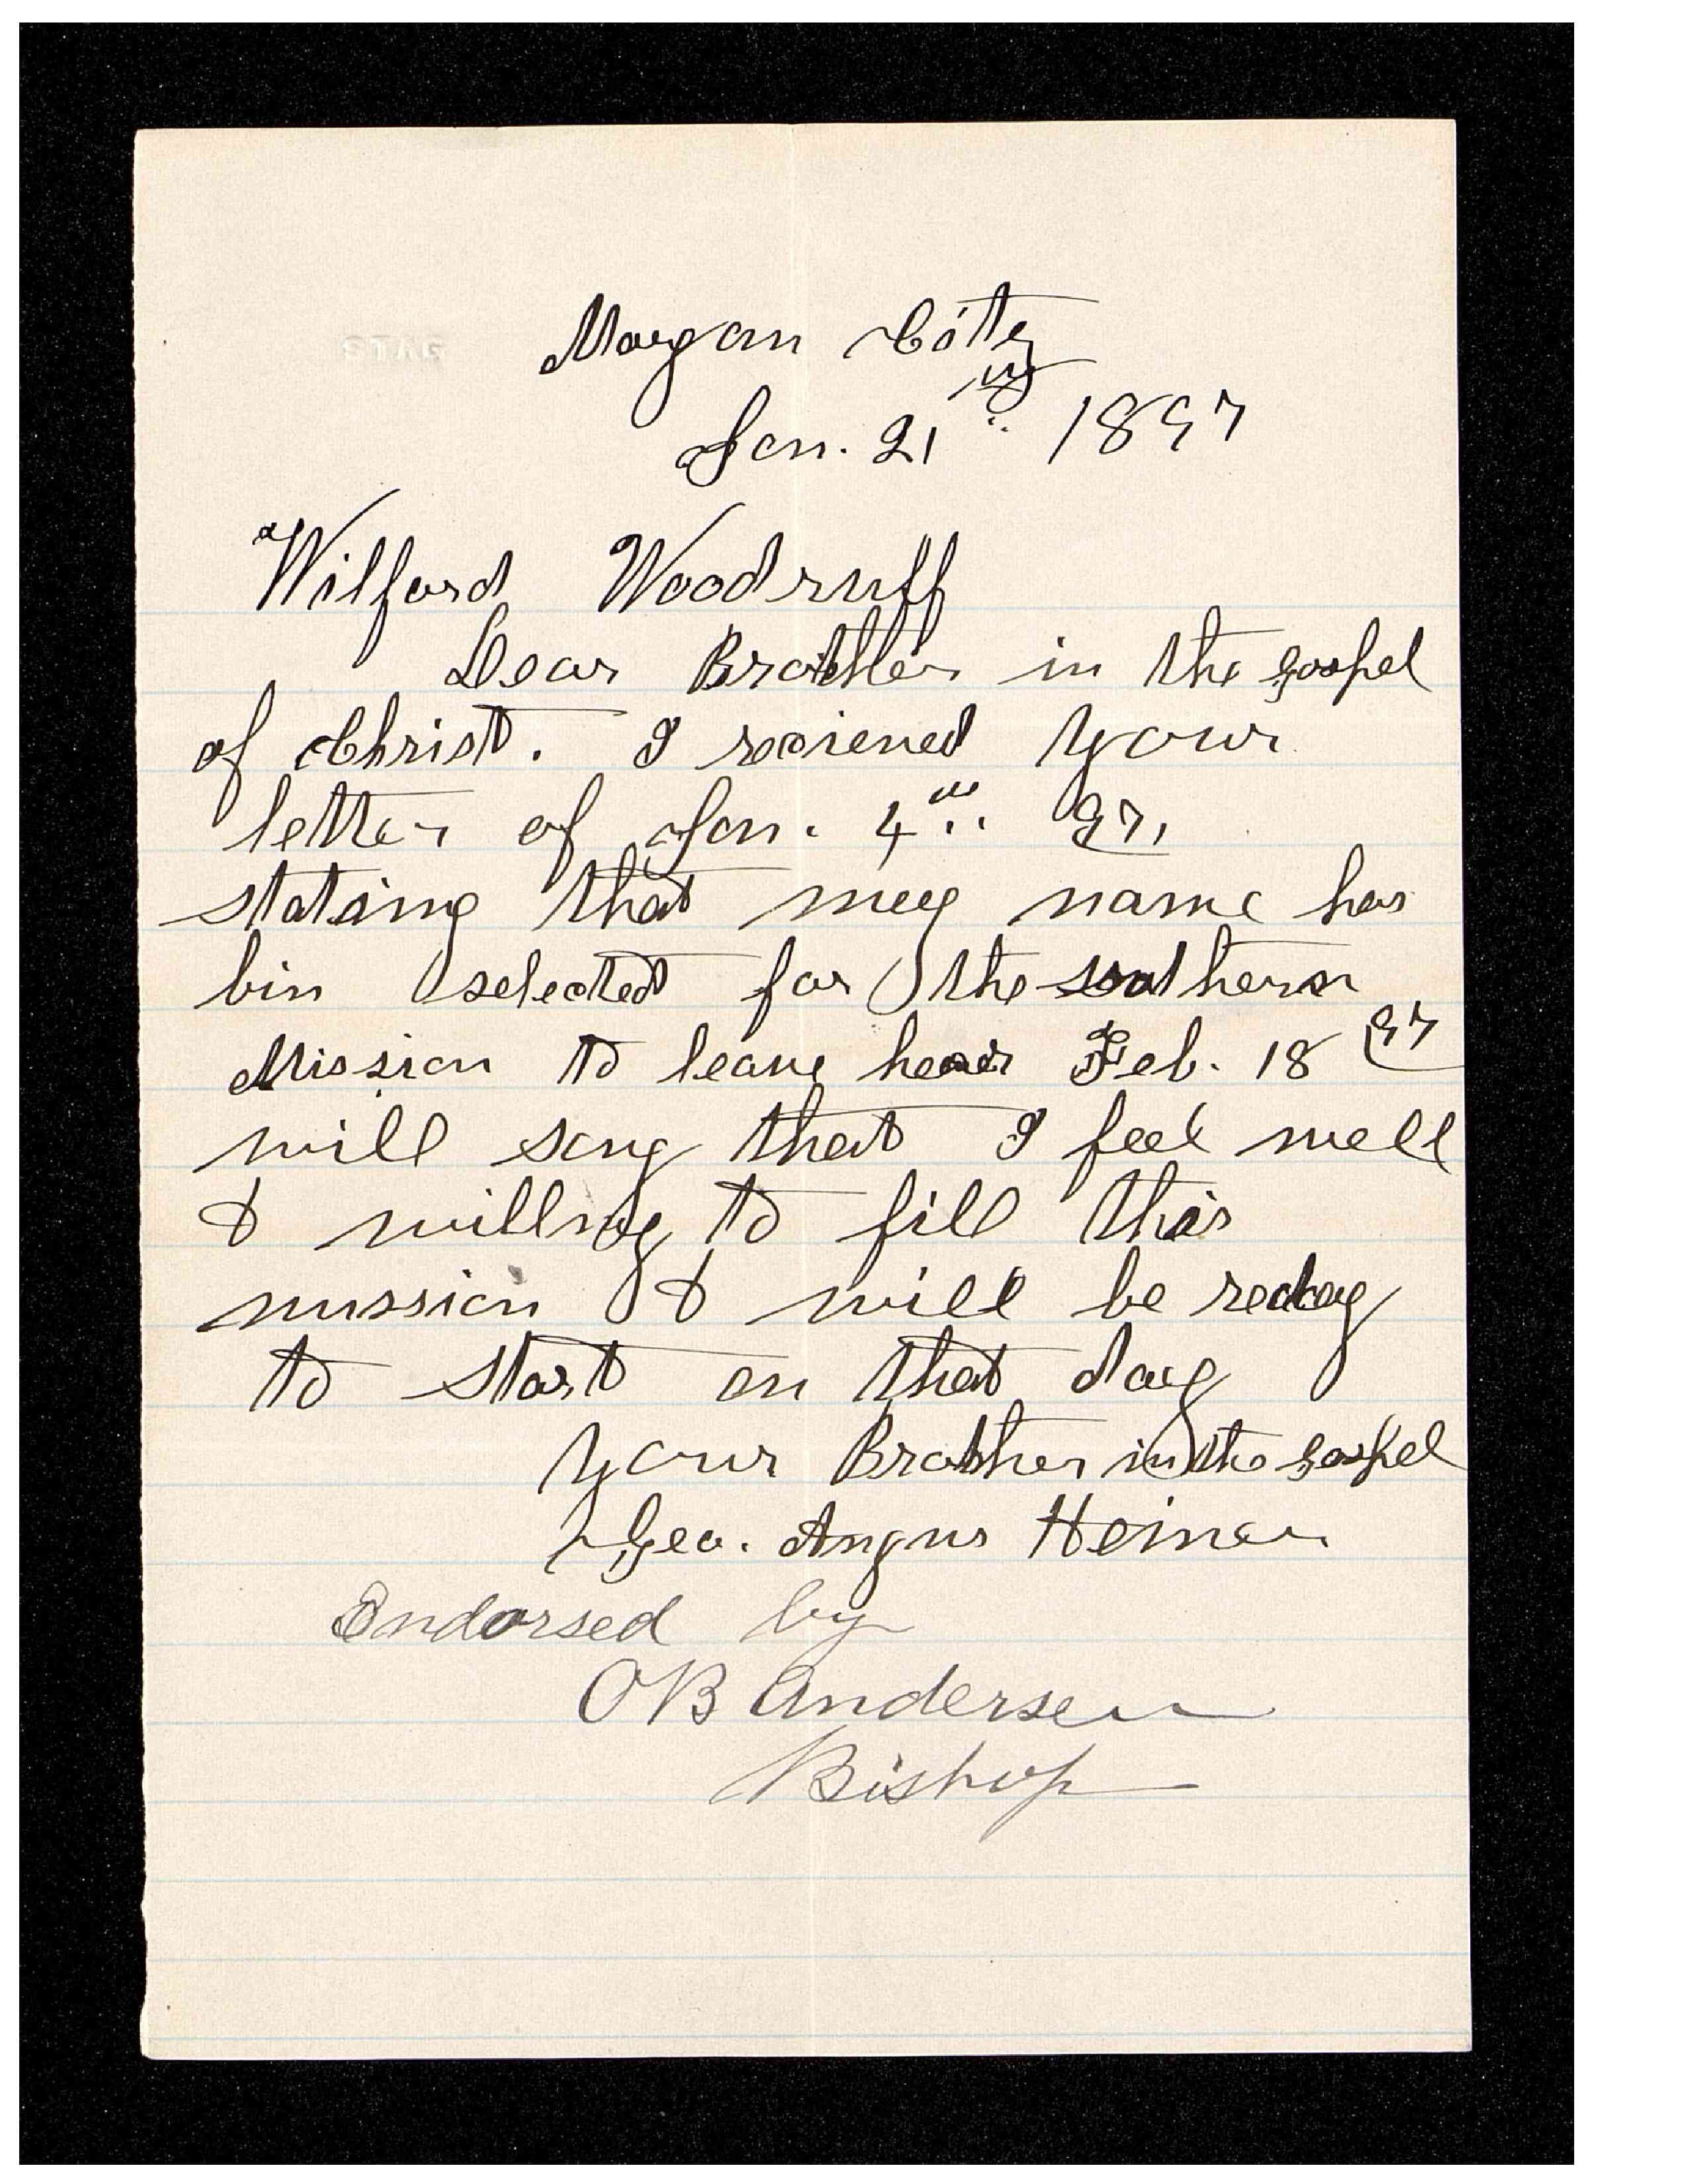 Morgan City
Jan. 21st 1897
Wilford Woodruff
Dear Brother in the gospel
of Christ. I recieved your
letter of Jan. 4th 97,
stating that my name has
bin selected for the southern
Mission to leave hear Feb. 18 97
will say that I feel well
& willing to fill this
mission & will be ready
to start on that day
Your Brother in the gospel
Geo. Angus Heiner
Endorsed by
OB Andersen
Bishop